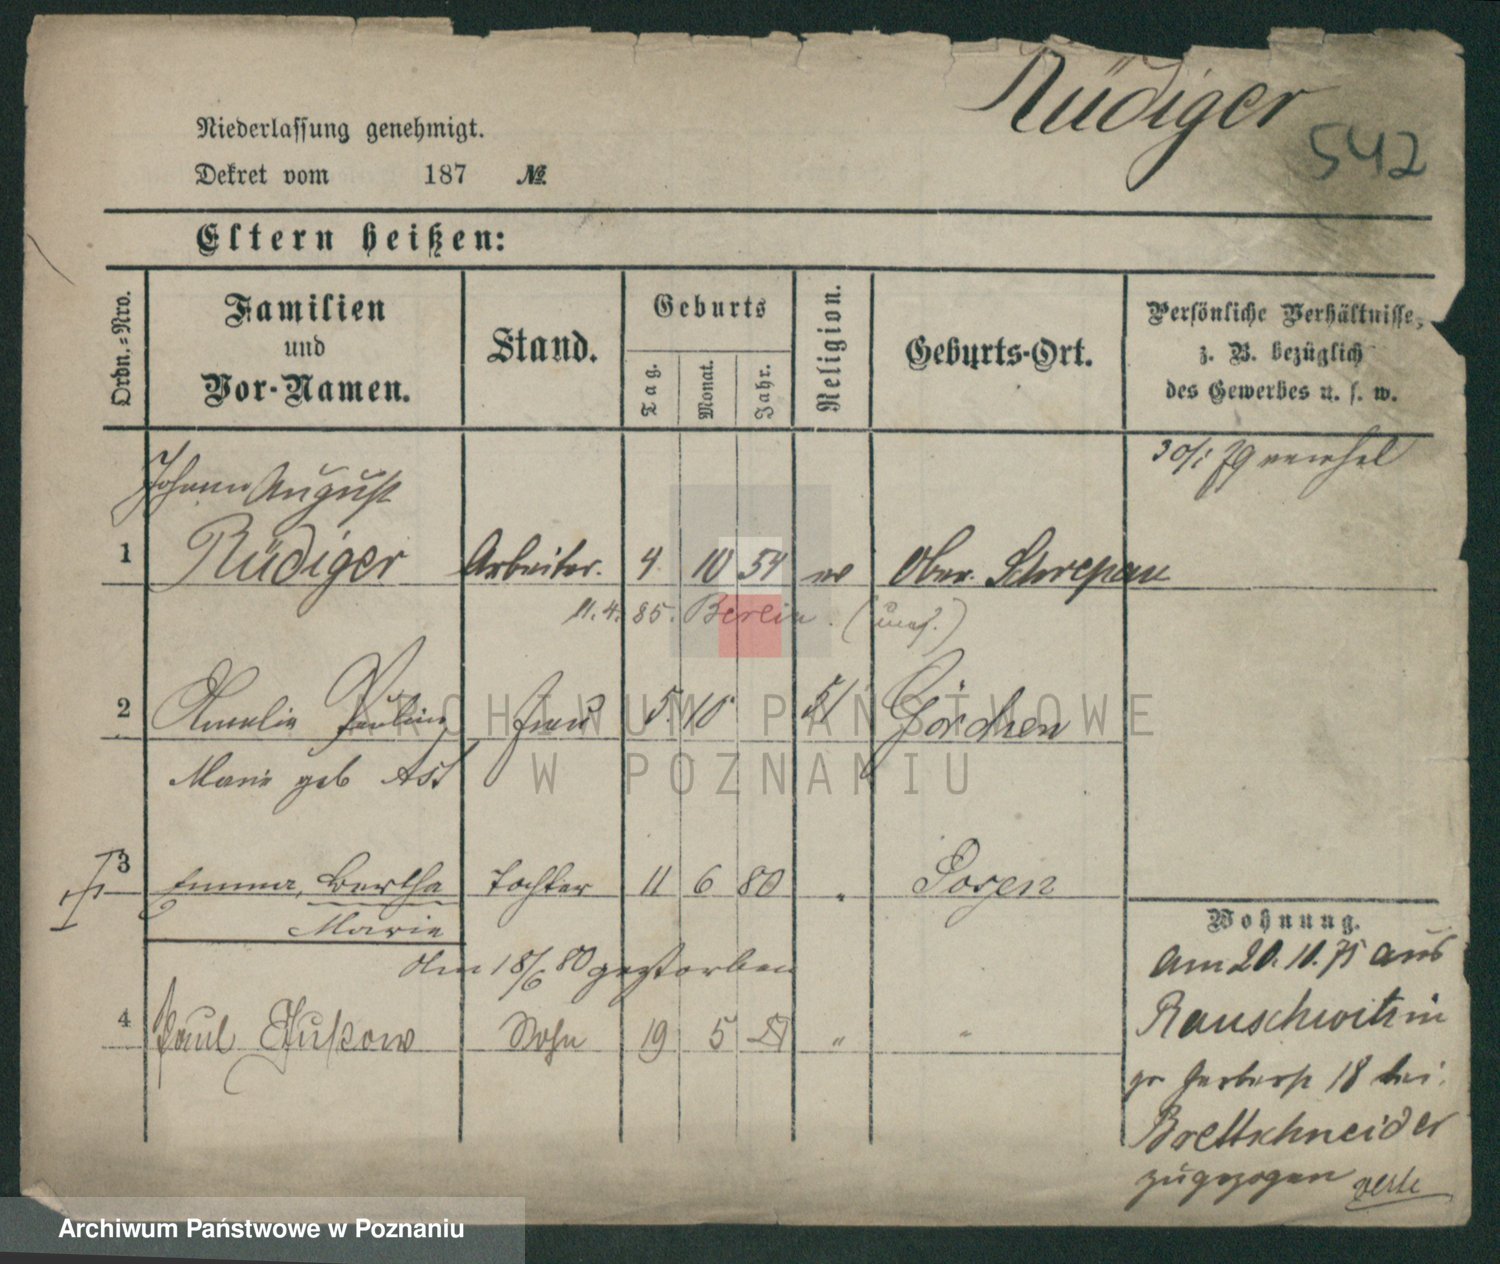 Rüdiger
542
Niederlassung genehmigt.
Dekret vom 187 №
Eltern heißen:
Ordn.-Nro. Familien und Vor-Namen. Stand. Geburts Tag. Monat. Jahr. Religion. Geburts-Ort. Persönliche Verhältnisse, z. B. bezüglich des Gewerbes u. s. w.
Johann August
1 Rüdiger Arbeiter. 4 10 54 ev Ober. Schrepau
11. 4. 85. Berlin.
2 Amalie Pauline Frau 5. 10 51 Görchen
Marie geb Ast
3 Emma, Bertha Tochter 11 6 80 " Posen
Marie
Am 18/6 80 gestorben
4 Paul Gustow Sohn 19 5 81 " "
Wohnung.
Am 20. 10. 75 aus
Rauschwitz in
gr Gerberst 18 bei
Brettschneider
zugezogen
ARCHIWUM PAŃSTWOWE
W POZNANIU
Archiwum Państwowe w Poznaniu